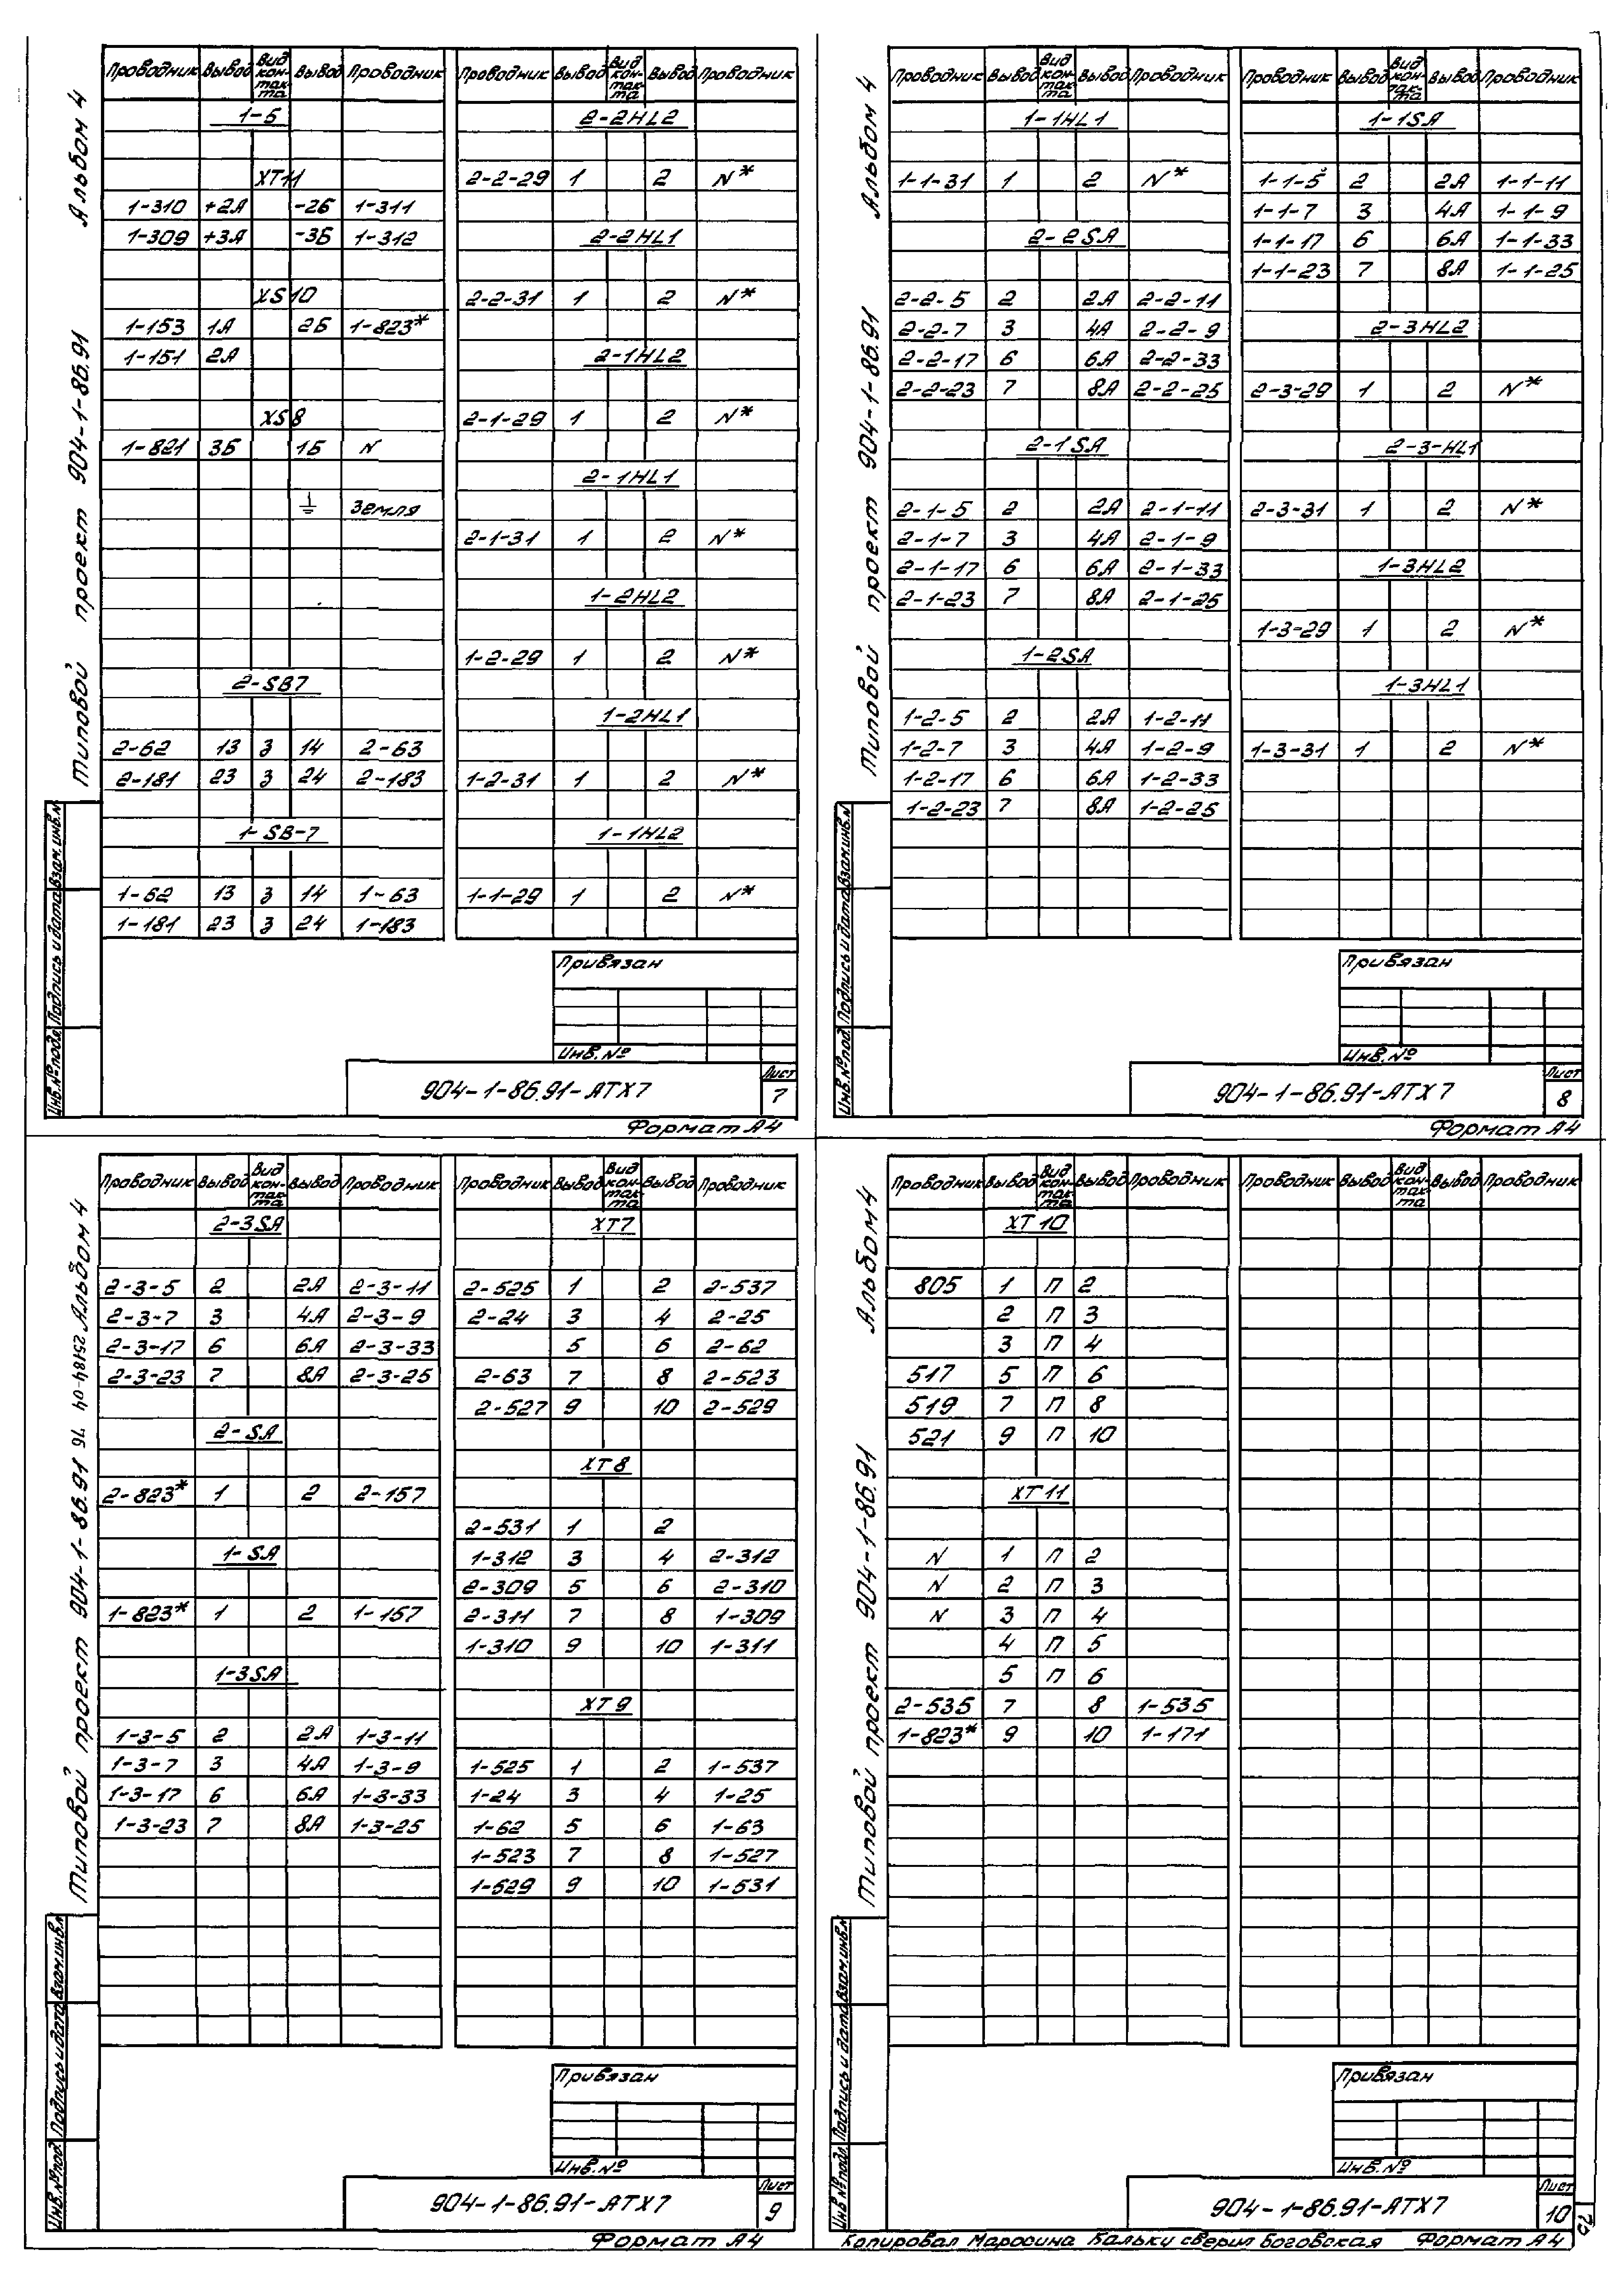 Альбом 4
Типовой проект 904-1-86.91
Проводник Вывод Вид кон-так-та Вывод Проводник
1-Б
XT11
1-310 +2А -2Б 1-311
1-309 +3А -3Б 1-312
XS10
1-153 1А 2Б 1-823*
1-151 2А
XS8
1-821 3Б 1Б N
⏚ Земля
2-SB7
2-62 13 з 14 2-63
2-181 23 з 24 2-183
1-SB-7
1-62 13 з 14 1-63
1-181 23 з 24 1-183
Проводник Вывод Вид кон-так-та Вывод Проводник
2-2HL2
2-2-29 1 2 N*
2-2HL1
2-2-31 1 2 N*
2-1HL2
2-1-29 1 2 N*
2-1HL1
2-1-31 1 2 N*
1-2HL2
1-2-29 1 2 N*
1-2HL1
1-2-31 1 2 N*
1-1HL2
1-1-29 1 2 N*
Инв.№подл. Подпись и дата Взам.инв.N
Привязан
Инв.№
904-1-86.91-АТХ7
Лист
7
Формат А4
Альбом 4
Типовой проект 904-1-86.91
Проводник Вывод Вид кон-так-та Вывод Проводник
1-1HL1
1-1-31 1 2 N*
2-2SA
2-2-5 2 2А 2-2-11
2-2-7 3 4А 2-2-9
2-2-17 6 6А 2-2-33
2-2-23 7 8А 2-2-25
2-1SA
2-1-5 2 2А 2-1-11
2-1-7 3 4А 2-1-9
2-1-17 6 6А 2-1-33
2-1-23 7 8А 2-1-25
1-2SA
1-2-5 2 2А 1-2-11
1-2-7 3 4А 1-2-9
1-2-17 6 6А 1-2-33
1-2-23 7 8А 1-2-25
Проводник Вывод Вид кон-так-та Вывод Проводник
1-1SA
1-1-5 2 2А 1-1-11
1-1-7 3 4А 1-1-9
1-1-17 6 6А 1-1-33
1-1-23 7 8А 1-1-25
2-3HL2
2-3-29 1 2 N*
2-3-HL1
2-3-31 1 2 N*
1-3HL2
1-3-29 1 2 N*
1-3HL1
1-3-31 1 2 N*
Инв.№под. Подпись и дата Взам.инв.N
Привязан
Инв.№
904-1-86.91-АТХ7
Лист
8
Формат А4
Альбом 4
25184-04 76
Типовой проект 904-1-86.91
Проводник Вывод Вид кон-так-та Вывод Проводник
2-3SA
2-3-5 2 2А 2-3-11
2-3-7 3 4А 2-3-9
2-3-17 6 6А 2-3-33
2-3-23 7 8А 2-3-25
2-SA
2-823* 1 2 2-157
1-SA
1-823* 1 2 1-157
1-3SA
1-3-5 2 2А 1-3-11
1-3-7 3 4А 1-3-9
1-3-17 6 6А 1-3-33
1-3-23 7 8А 1-3-25
Проводник Вывод Вид кон-так-та Вывод Проводник
XT7
2-525 1 2 2-537
2-24 3 4 2-25
5 6 2-62
2-63 7 8 2-523
2-527 9 10 2-529
XT8
2-531 1 2
1-312 3 4 2-312
2-309 5 6 2-310
2-311 7 8 1-309
1-310 9 10 1-311
XT9
1-525 1 2 1-537
1-24 3 4 1-25
1-62 5 6 1-63
1-523 7 8 1-527
1-529 9 10 1-531
Инв.№под. Подпись и дата Взам.инв.N
Привязан
Инв.№
904-1-86.91-АТХ7
Лист
9
Формат А4
Альбом 4
Типовой проект 904-1-86.91
Проводник Вывод Вид кон-так-та Вывод Проводник
XT10
805 1 П 2
2 П 3
3 П 4
517 5 П 6
519 7 П 8
521 9 П 10
XT11
N 1 П 2
N 2 П 3
N 3 П 4
4 П 5
5 П 6
2-535 7 8 1-535
1-823* 9 10 1-171
Проводник Вывод Вид кон-так-та Вывод Проводник
Инв.№подл. Подпись и дата Взам.инв.N
Привязан
Инв.№
904-1-86.91-АТХ7
Лист
10
Копировал Маросина Кальку сверил Боговская Формат А4